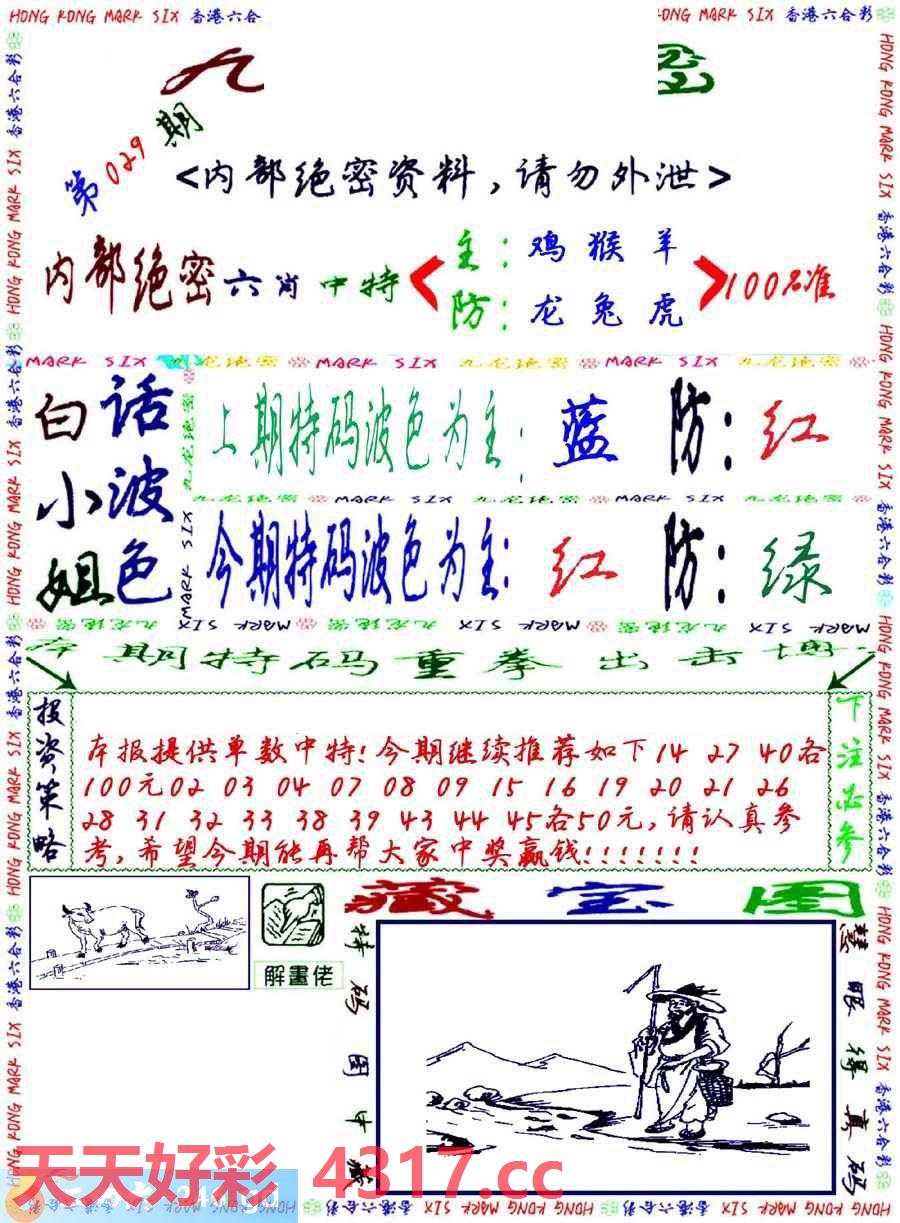 HONG KONG MARK SIX 香港六合
KONG MARK SIX 香港六合彩
九
第029期
<内部绝密资料,请勿外泄>
内部绝密六肖中特
主:鸡猴羊
防:龙兔虎
100%准
MARK SIX 九龙绝密 MARK SIX 九龙绝密 MARK SIX 九龙绝密
白话
小波
姐色
上期特码波色为主:蓝 防:红
九龙绝密 MARK SIX 九龙绝密 MARK SIX 九龙绝密
今期特码波色为主:红 防:绿
九龙绝密 MARK SIX MARK SIX 九龙绝密 MARK SIX 九龙绝密 MARK SIX
本期特码重拳出击博
投资策略
本报提供单数中特!今期继续推荐如下14 27 40各
100元02 03 04 07 08 09 15 16 19 20 21 26
28 31 32 33 38 39 43 44 45各50元,请认真参
考,希望今期能再帮大家中奖赢钱!!!!!!!
下注必参
藏宝图
解畫佬
特码图中藏
慧眼得真码
天天好彩 4317.cc
HONG KONG MARK SIX 香港六合彩